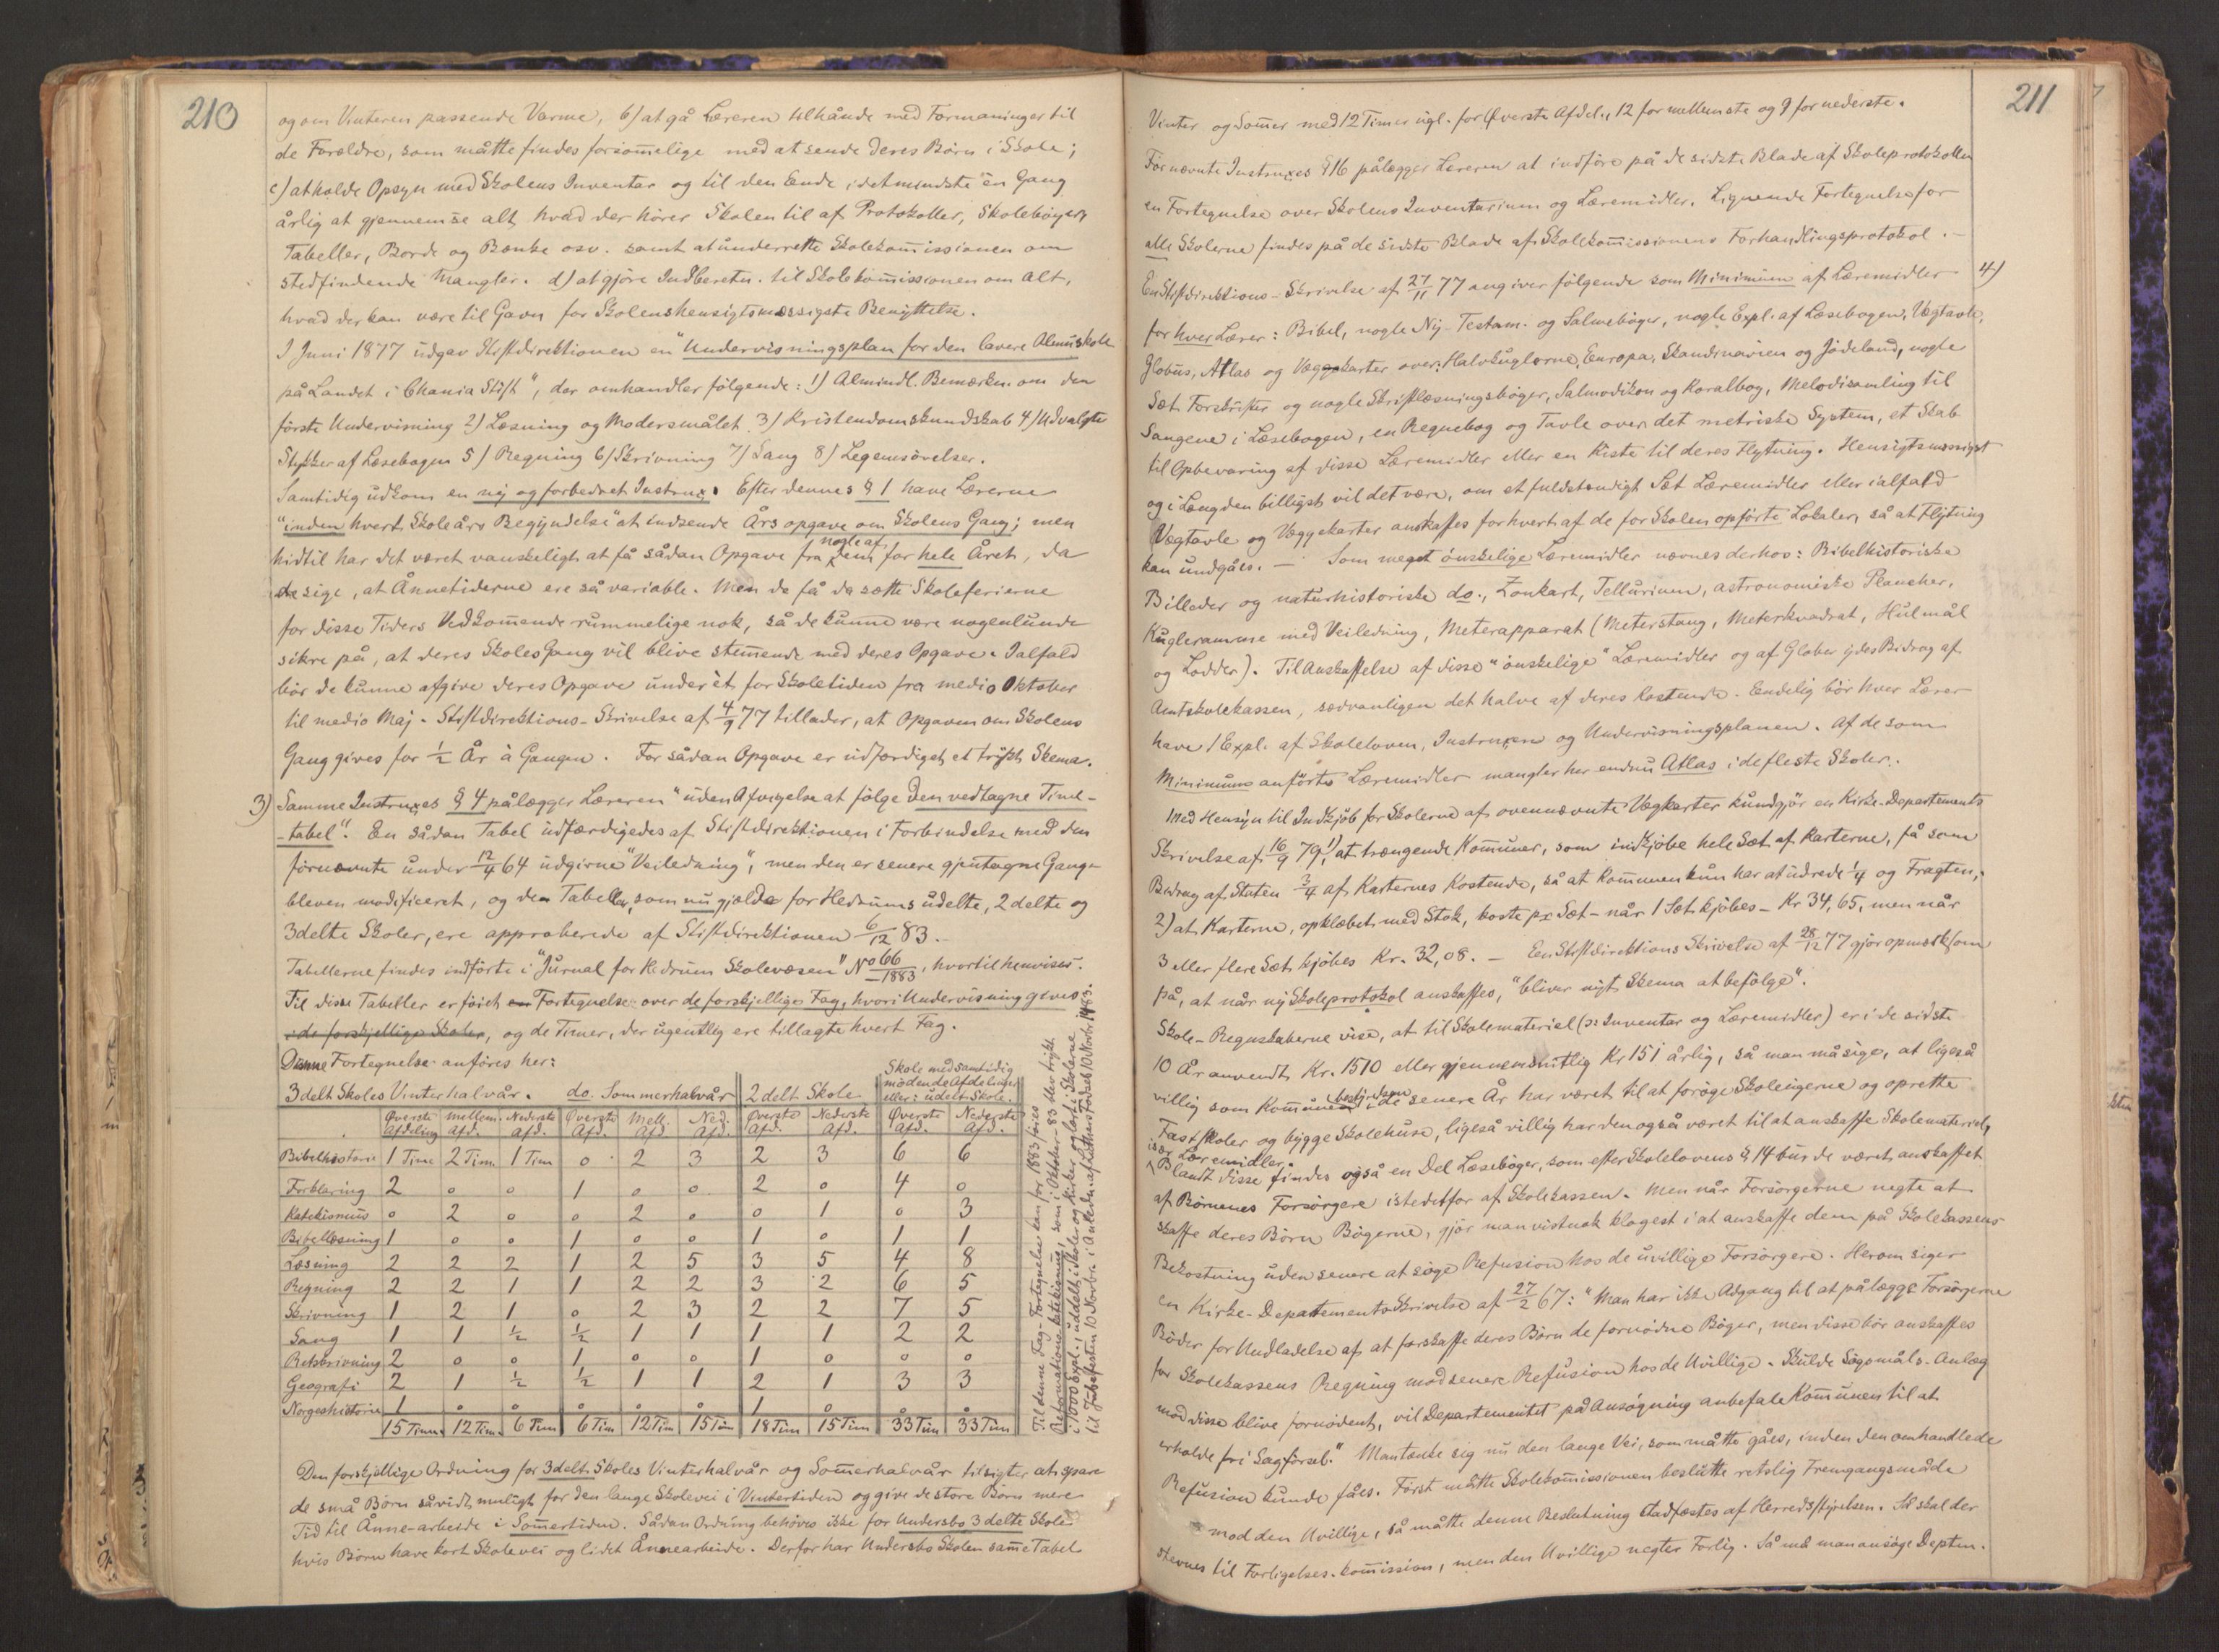 210
og om Vinteren passende Varme, b) at gå Læreren tilhånde med Formaninger til
de Forældre, som måtte findes forsom̅elige med at sende deres Børn i Skole;
c) at holde Opsyn med Skolens Inventar og til den Ende i det mindste én Gang
årlig at gjennemse alt, hvad der hører Skolen til af Protokoller, Skolebøger,
Tabeller, Borde og Bænke osv. samt at underrette Skolekom̅issionen om
stedfindende Mangler. d) at gjøre Indberetn. til Skolekom̅issionen om Alt,
hvad der kan være til Gavn for Skolens hensigtsmæssigste Benyttelse.
I Juni 1877 udgav Stiftsdirektionen en "Undervisningsplan for den lavere Almuskole
på Landet i Chania Stift", der omhandler følgende: 1) Almindl. Bemærkn. om den
første Undervisning 2) Læsning og Modersmålet 3) Kristendomskundskab 4) Udvalgte
Stykker af Læsebogen 5) Regning 6) Skrivning 7) Sang 8) Legemsøvelser.
Samtidig udkom en ny og forbedret Instrux. Efter dennes § 1 have Lærerne
"inden hvert Skoleårs Begyndelse" at indsende Års opgave om Skolens Gang; men
hidtil har det været vanskeligt at få sådan Opgave fra nogle af dem for hele Året, da
de sige, at Ånnetiderne ere så variable. Men de få da sætte Skoleferierne
for disse Tiders Vedkom̅ende rummelige nok, så de kunne være nogenlunde
sikre på, at deres Skoles Gang vil blive stem̅ende med deres Opgave. Ialfald
bør de kunne afgive deres Opgave under ét for Skoletiden fra medio Oktober
til medio Maj. Stiftsdirektions-Skrivelse af 4/9 77 tillader, at Opgaven om Skolens
Gang gives for ½ År à Gangen. For sådan Opgave er udfærdiget et trykt Skema.
3) Samme Instruxes § 4 pålægger Læreren "uden Afvigelse at følge den vedtagne Time-
-tabel". En sådan Tabel udfærdigedes af Stiftsdirektionen i Forbindelse med den
førnævnte under 12/4 64 udgivne "Veiledning", men den er senere gjentagne Gange
bleven modificeret, og den Tabeller, som nu gjælde for Hedrums udelte, 2 delte og
3 delte Skoler, ere approberede af Stiftsdirektionen 6/12 83.
Tabellerne findes indførte i "Jurnal for Hedrum Skolevæsen" No 66/1883, hvortil henvises.
Til disse Tabeller er føiet en Fortegnelse over de forskjellige Fag, hvori Undervisning gives
i de forskjellige Skoler, og de Timer, der ugentlig ere tillagte hvert Fag.
Denne Fortegnelse anføres her:
3 delt Skoles Vinterhalvår. do. Sommerhalvår 2 delt Skole Skole med samtidig mødende Afdelinger eller: udelt Skole.
Øverste Afdeling Mellem. Afd. Nederste Afd. Øverste Afd. Mell. Afd. Ned. Afd. Øverste Afd. Nederste Afd. Øverste Afd. Nederste Afd.
Bibelhistorie 1 Time 2 Tim. 1 Tim 0 2 3 2 3 6 6
Forklaring 2 0 0 1 0 0 2 0 4 0
Katekismus 0 2 0 0 2 0 0 1 0 3
Bibellæsning 1 0 0 1 0 0 1 0 1 1
Læsning 2 2 2 1 2 5 3 5 4 8
Regning 2 2 1 1 2 2 3 2 6 5
Skrivning 1 2 1 0 2 3 2 2 7 5
Sang 1 1 ½ ½ 1 1 1 1 2 2
Retskrivning 2 0 0 1 0 0 1 0 0 0
Geografi 2 1 ½ ½ 1 1 2 1 3 3
Norgeshistorie 1 0 0 0 0 0 1 0 0 0
15 Timer 12 Tim. 6 Tim 6 Tim 12 Tim 15 Tim 18 Tim 15 Tim 33 Tim 33 Tim
Til denne Fag-Fortegnelse kan for 1883 føies
Reformations-katekismus, som i Oktober -83 blev trykt
i 1000 Expl., uddelt i Skoler og Kirker og lært i Skolerne
til Jubelfesten 10 Novbr. i Anledn. af Luthers Fødsel 10 Novbr 1483.
Den forskjellige Ordning for 3 delt Skoles Vinterhalvår og Som̅erhalvår tilsigter at spare
de små Børn såvidt muligt for den lange Skolevei i Vintertiden og give de store Børn mere
Tid til Ånne-arbeide i Som̅ertiden. Sådan Ordning behøves ikke for Undersbo 3 delte Skole
hvis Børn have kort Skolevei og lidet Ånnearbeide. Derfor har Undersbo Skolen sam̅e Tabel
211
Vinter og Som̅er med 12 Timer ugl. for Øverste Afdel., 12 for mellemste og 9 for nederste.
Førnævnte Instruxes § 16 pålægger Læreren at indføre på de sidste Blade af Skoleprotokollen
en Fortegnelse over Skolens Inventarium og Læremidler. Lignende Fortegnelse for
alle Skolerne findes på de sidste Blade af Skolekom̅issionens Forhandlingsprotokol.
4) En Stiftsdirektions-Skrivelse af 27/11 77 angiver følgende som Minimum af Læremidler
for hver Lærer: Bibel, nogle Ny-Testam. og Salmebøger, nogle Expl. af Læsebogen, Vægtavle,
Globus, Atlas og Væggekarter over: Halvkuglerne, Europa, Skandinavien og Jødeland, nogle
Sæt Forskrifter og nogle Skriftlæsningsbøger, Salmodikon og Koralbog, Melodisamling til
Sangene i Læsebogen, en Regnebog og Tavle over det metriske System, et Skab
til Opbevaring af disse Læremidler eller en Kiste til deres Flytning. Hensigtsmæssigst
og i Længden billigst vil det være, om et fuldstændigt Sæt Læremidler eller ialfald
Vægtavle og Væggekarter anskaffes for hvert af de for Skolen opførte Lokaler, så at Flytning
kan undgåes. — Som meget ønskelige Læremidler nævnes derhos: Bibelhistoriske
Billeder og naturhistoriske do., Zonkart, Tellurium, astronomiske Plancher,
Kugleramme med Veiledning, Meterapparat (Meterstang, Meterkvadrat, Hulmål
og Lodder). Til Anskaffelse af disse "ønskelige" Læremidler og af Glober ydes Bidrag af
Amtskolekassen, sædvanligen det halve af deres Kostende. Endelig bør hver Lærer
have 1 Expl. af Skoleloven, Instruxen og Undervisningsplanen. Af de som
Minimum anførte Læremidler mangler her endnu Atlas i de fleste Skoler.
Med Hensyn til Indkjøb for Skolerne af ovennævnte Vægkarter kundgjør en Kirke-Departements
Skrivelse af 16/9 79, 1) at trængende Kom̅uner, som indkjøbe hele Sæt af Karterne, få som
Bidrag af Staten ¾ af Karternes Kostende, så at Kommunen kun har at udrede ¼ og Fragten,
2) at Karterne, opklæbet med Stok, koste pr Sæt - når 1 Sæt kjøbes - Kr 34,65, men når
3 eller flere Sæt kjøbes Kr. 32,08. — En Stiftsdirektions Skrivelse af 28/12 77 gjør opmærksom
på, at når ny Skoleprotokol anskaffes, "bliver nyt Skema at befølge".
Skole-Regnskaberne vise, at til Skolemateriel (ɔ: Inventar og Læremidler) er i de sidste
10 År anvendt Kr. 1510 eller gjennemsnitlig Kr 151 årlig, så man må sige, at ligeså
villig som Kommunebestyrelsen i de senere År har været til at forøge Skoleugerne og oprette
Fastskoler og bygge Skolehuse, ligeså villig har den også været til at anskaffe Skolemateriel,
især Læremidler.
Blandt disse findes også en Del Læsebøger, som efter Skolelovens § 14 burde været anskaffet
af Børnenes Forsørgere istedetfor af Skolekassen. Men når Forsørgerne negte at
skaffe deres Børn Bøgerne, gjør man vistnok klogest i at anskaffe dem på Skolekassens
Bekostning uden senere at søge Refusion hos de uvillige Forsørgere. Herom siger
en Kirke-Departements Skrivelse af 27/2 67: "Man har ikke Adgang til at pålægge Forsørgerne
Bøder for Undladelse af at forskaffe deres Børn de fornødne Bøger, men disse bør anskaffes
for Skolekassens Regning mod senere Refusion hos de Uvillige. Skulde Søgsmåls-Anlæg
mod disse blive fornødent, vil Departementet på Ansøgning anbefale Kom̅unen til at
erholde fri Sagførsel." Man tænke sig nu den lange Vei, som måtte gåes, inden den omhandlede
Refusion kunde fåes. Først måtte Skolekom̅issionen beslutte retslig Fremgangsmåde
mod den Uvillige, så måtte denne Beslutning stadfæstes af Herredsstyrelsen. Så skal der
stevnes til Forligelses-kom̅ission, men den Uvillige negter Forlig. Så må man ansøge Deptem.